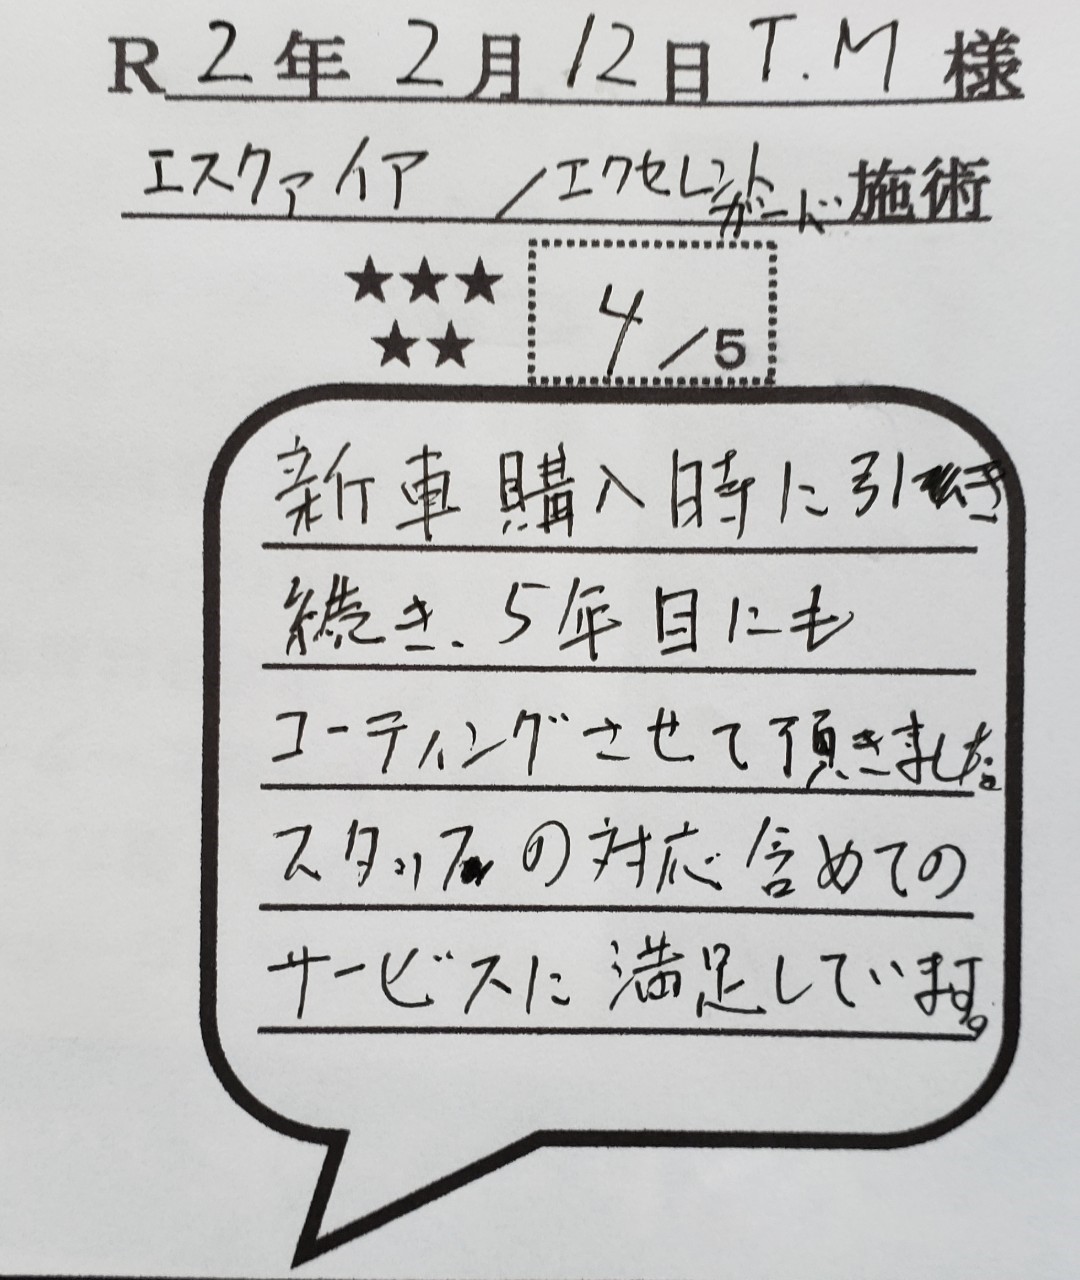 R2年2月12日 T.M 様
エスクァイア /エクセレントガード 施術
★★★
★★
4/5
新車購入時に引き
続き、5年目にも
コーティングさせて頂きました。
スタッフの対応含めての
サービスに満足しています。